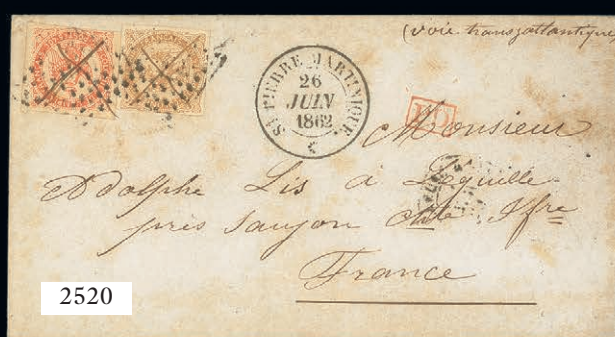 (voie transatlantique
ST PIERRE MARTINIQUE
26
JUIN
1862
PD
Monsieur
Adolphe Lis à Léguille
près Saujon chte Ifre
France
2520